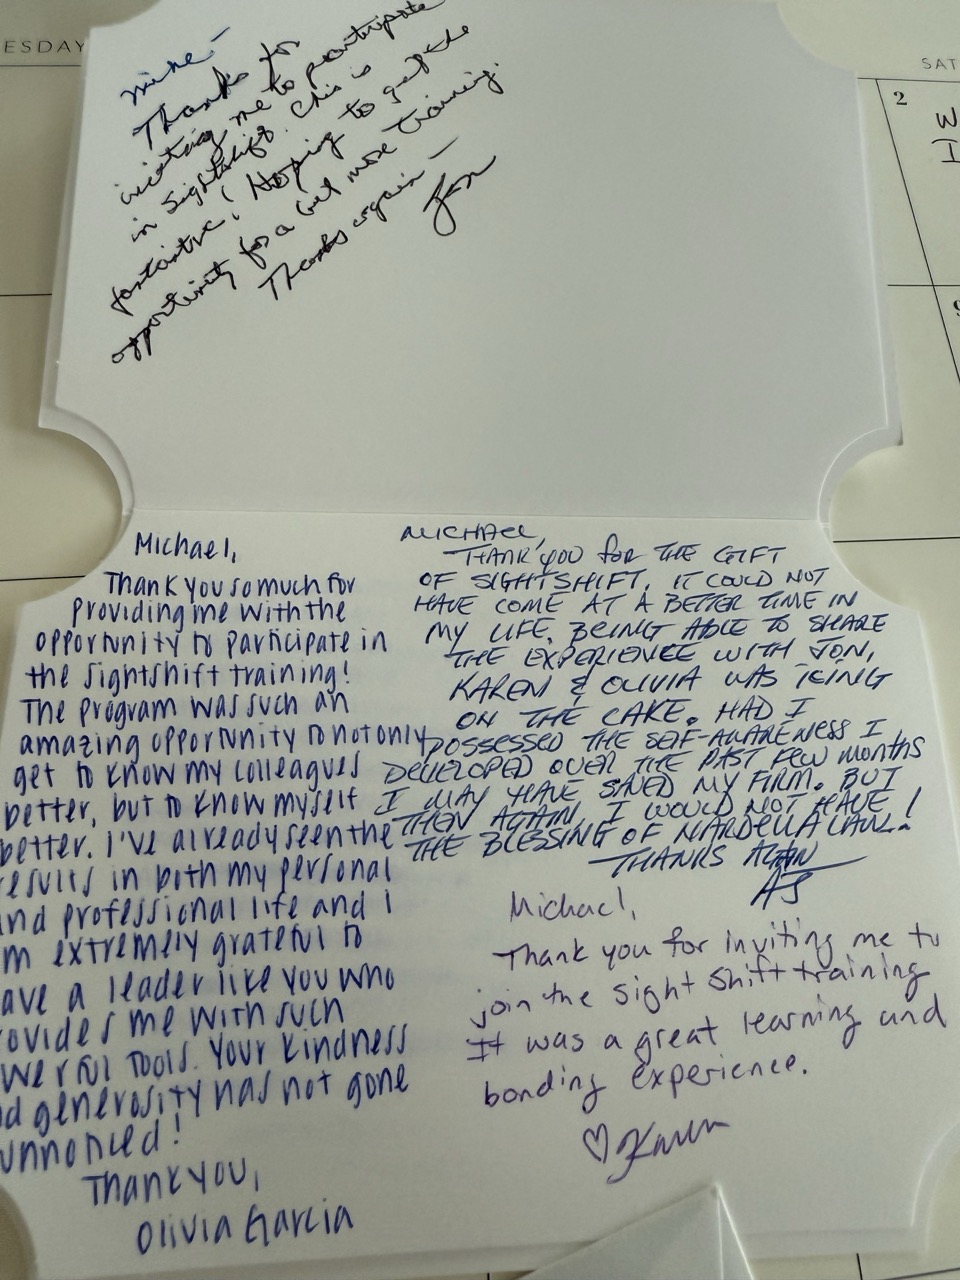 ESDAY
SAT
2
W
I
Mike-
Thanks for
inviting me to participate
in Sightshift. This is
fantastic! Hoping to get the
opportunity for a lil more training.
Thanks again -
Jon
Michael,
Thank you so much for
providing me with the
opportunity to participate in
the sightshift training!
The program was such an
amazing opportunity to not only
get to know my colleagues
better, but to know myself
better. I've already seen the
results in both my personal
and professional life and I
m extremely grateful to
ave a leader like you who
ovides me with such
werful tools. Your kindness
d generosity has not gone
unnoticed!
Thank you,
Olivia Garcia
MICHAEL,
THANK YOU FOR THE GIFT
OF SIGHTSHIFT. IT COULD NOT
HAVE COME AT A BETTER TIME IN
MY LIFE. BEING ABLE TO SHARE
THE EXPERIENCE WITH JON,
KAREN & OLIVIA WAS ICING
ON THE CAKE. HAD I
POSSESSED THE SELF-AWARENESS I
DEVELOPED OVER THE PAST FEW MONTHS
I MAY HAVE SAVED MY FIRM. BUT
THEN AGAIN, I WOULD NOT HAVE
THE BLESSING OF NARDELLA LAW!
THANKS AGAIN
AJ
Michael,
Thank you for inviting me to
join the sight shift training
It was a great learning and
bonding experience.
♡ Karen